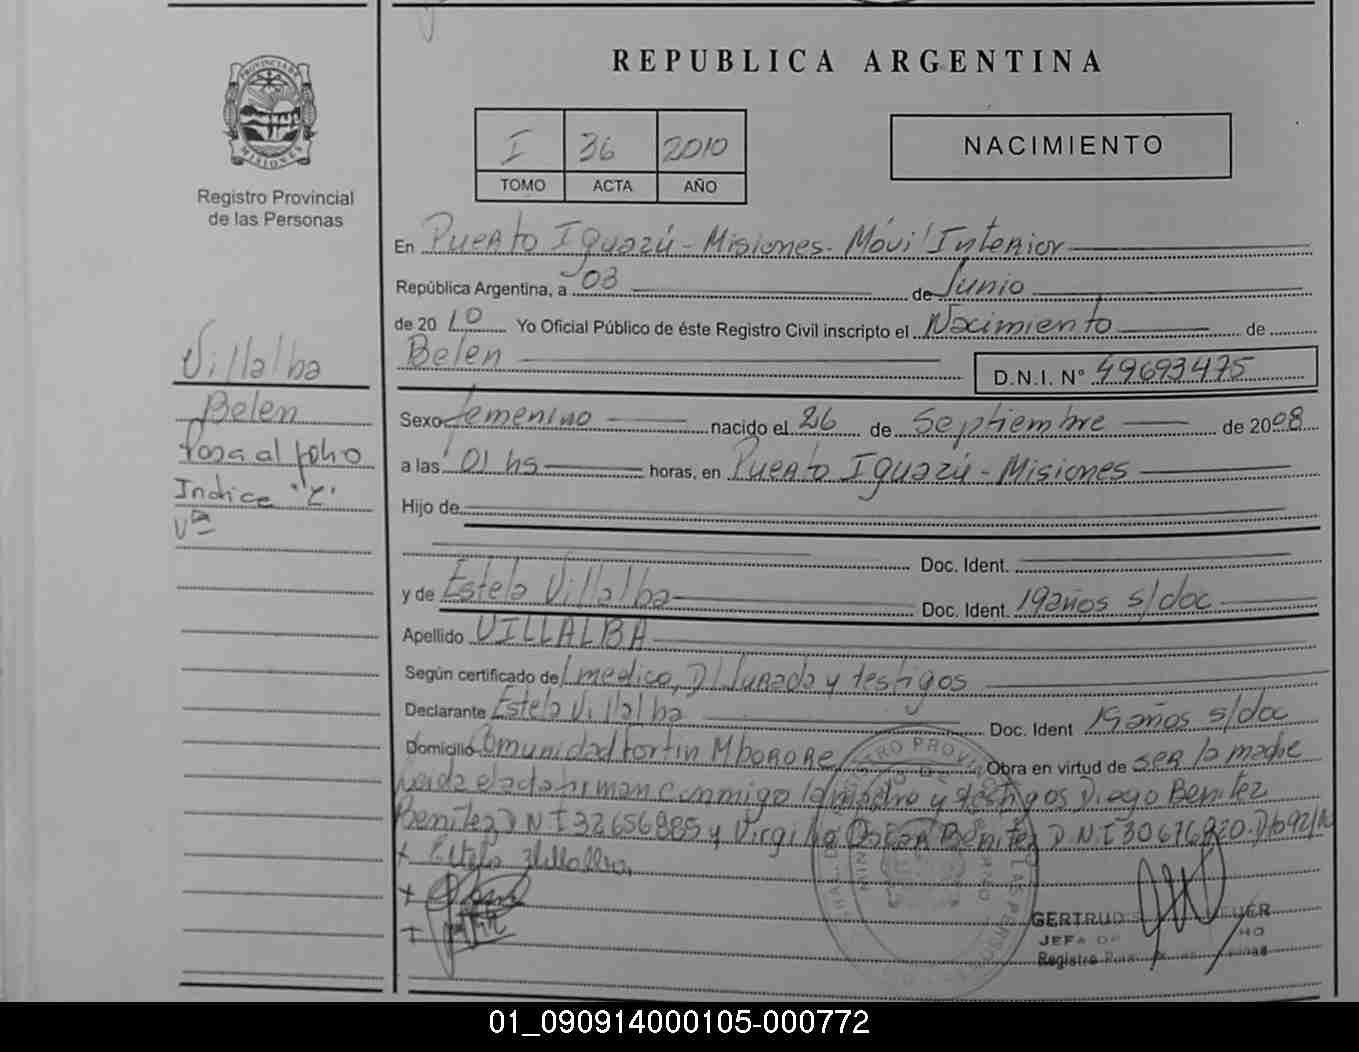 PROVINCIA DE
MISIONES
Registro Provincial
de las Personas
Villalba
Belen
Pasa al folio
Indice "Z"
Vta
REPUBLICA ARGENTINA
I 36 2010
TOMO ACTA AÑO
NACIMIENTO
En Puerto Iguazú - Misiones - Móvil Interior
República Argentina, a 03 de Junio
de 2010 Yo Oficial Público de éste Registro Civil inscripto el Nacimiento de
Belen D.N.I. N° 49693475
Sexo femenino nacido el 26 de Septiembre de 2008
a las 01 hs horas, en Puerto Iguazú - Misiones
Hijo de
Doc. Ident.
y de Estela Villalba Doc. Ident. 19 años s/doc
Apellido VILLALBA
Según certificado de medico, D/Jurada y testigos
Declarante Estela Villalba Doc. Ident 19 años s/doc
Domicilio Comunidad Fortin Mborore Obra en virtud de ser la madre
Leida el acta firman conmigo la madre y testigos Diego Benitez
Benitez D.N.I 32656885 y Virgilio Oscar Benitez D.N.I
+ Estela Villalba
+
+
GERTRUD
JEFA DE
Registro
01_090914000105-000772